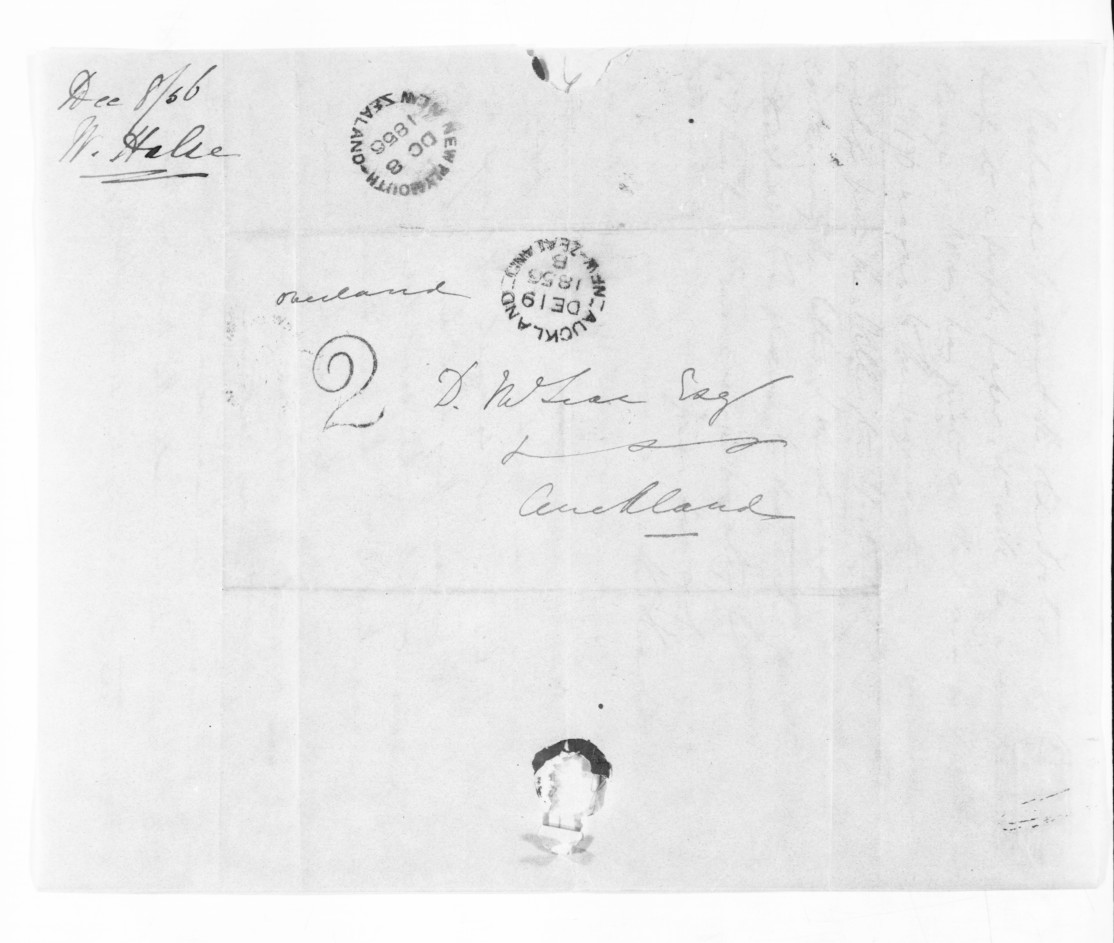 Dec 8/56
W. Halse
NEW PLYMOUTH - NEW ZEALAND
DC 8
1856
AUCKLAND - NEW-ZEALAND
DE 19
1856
8
overland
2
D. McLean Esq
Auckland